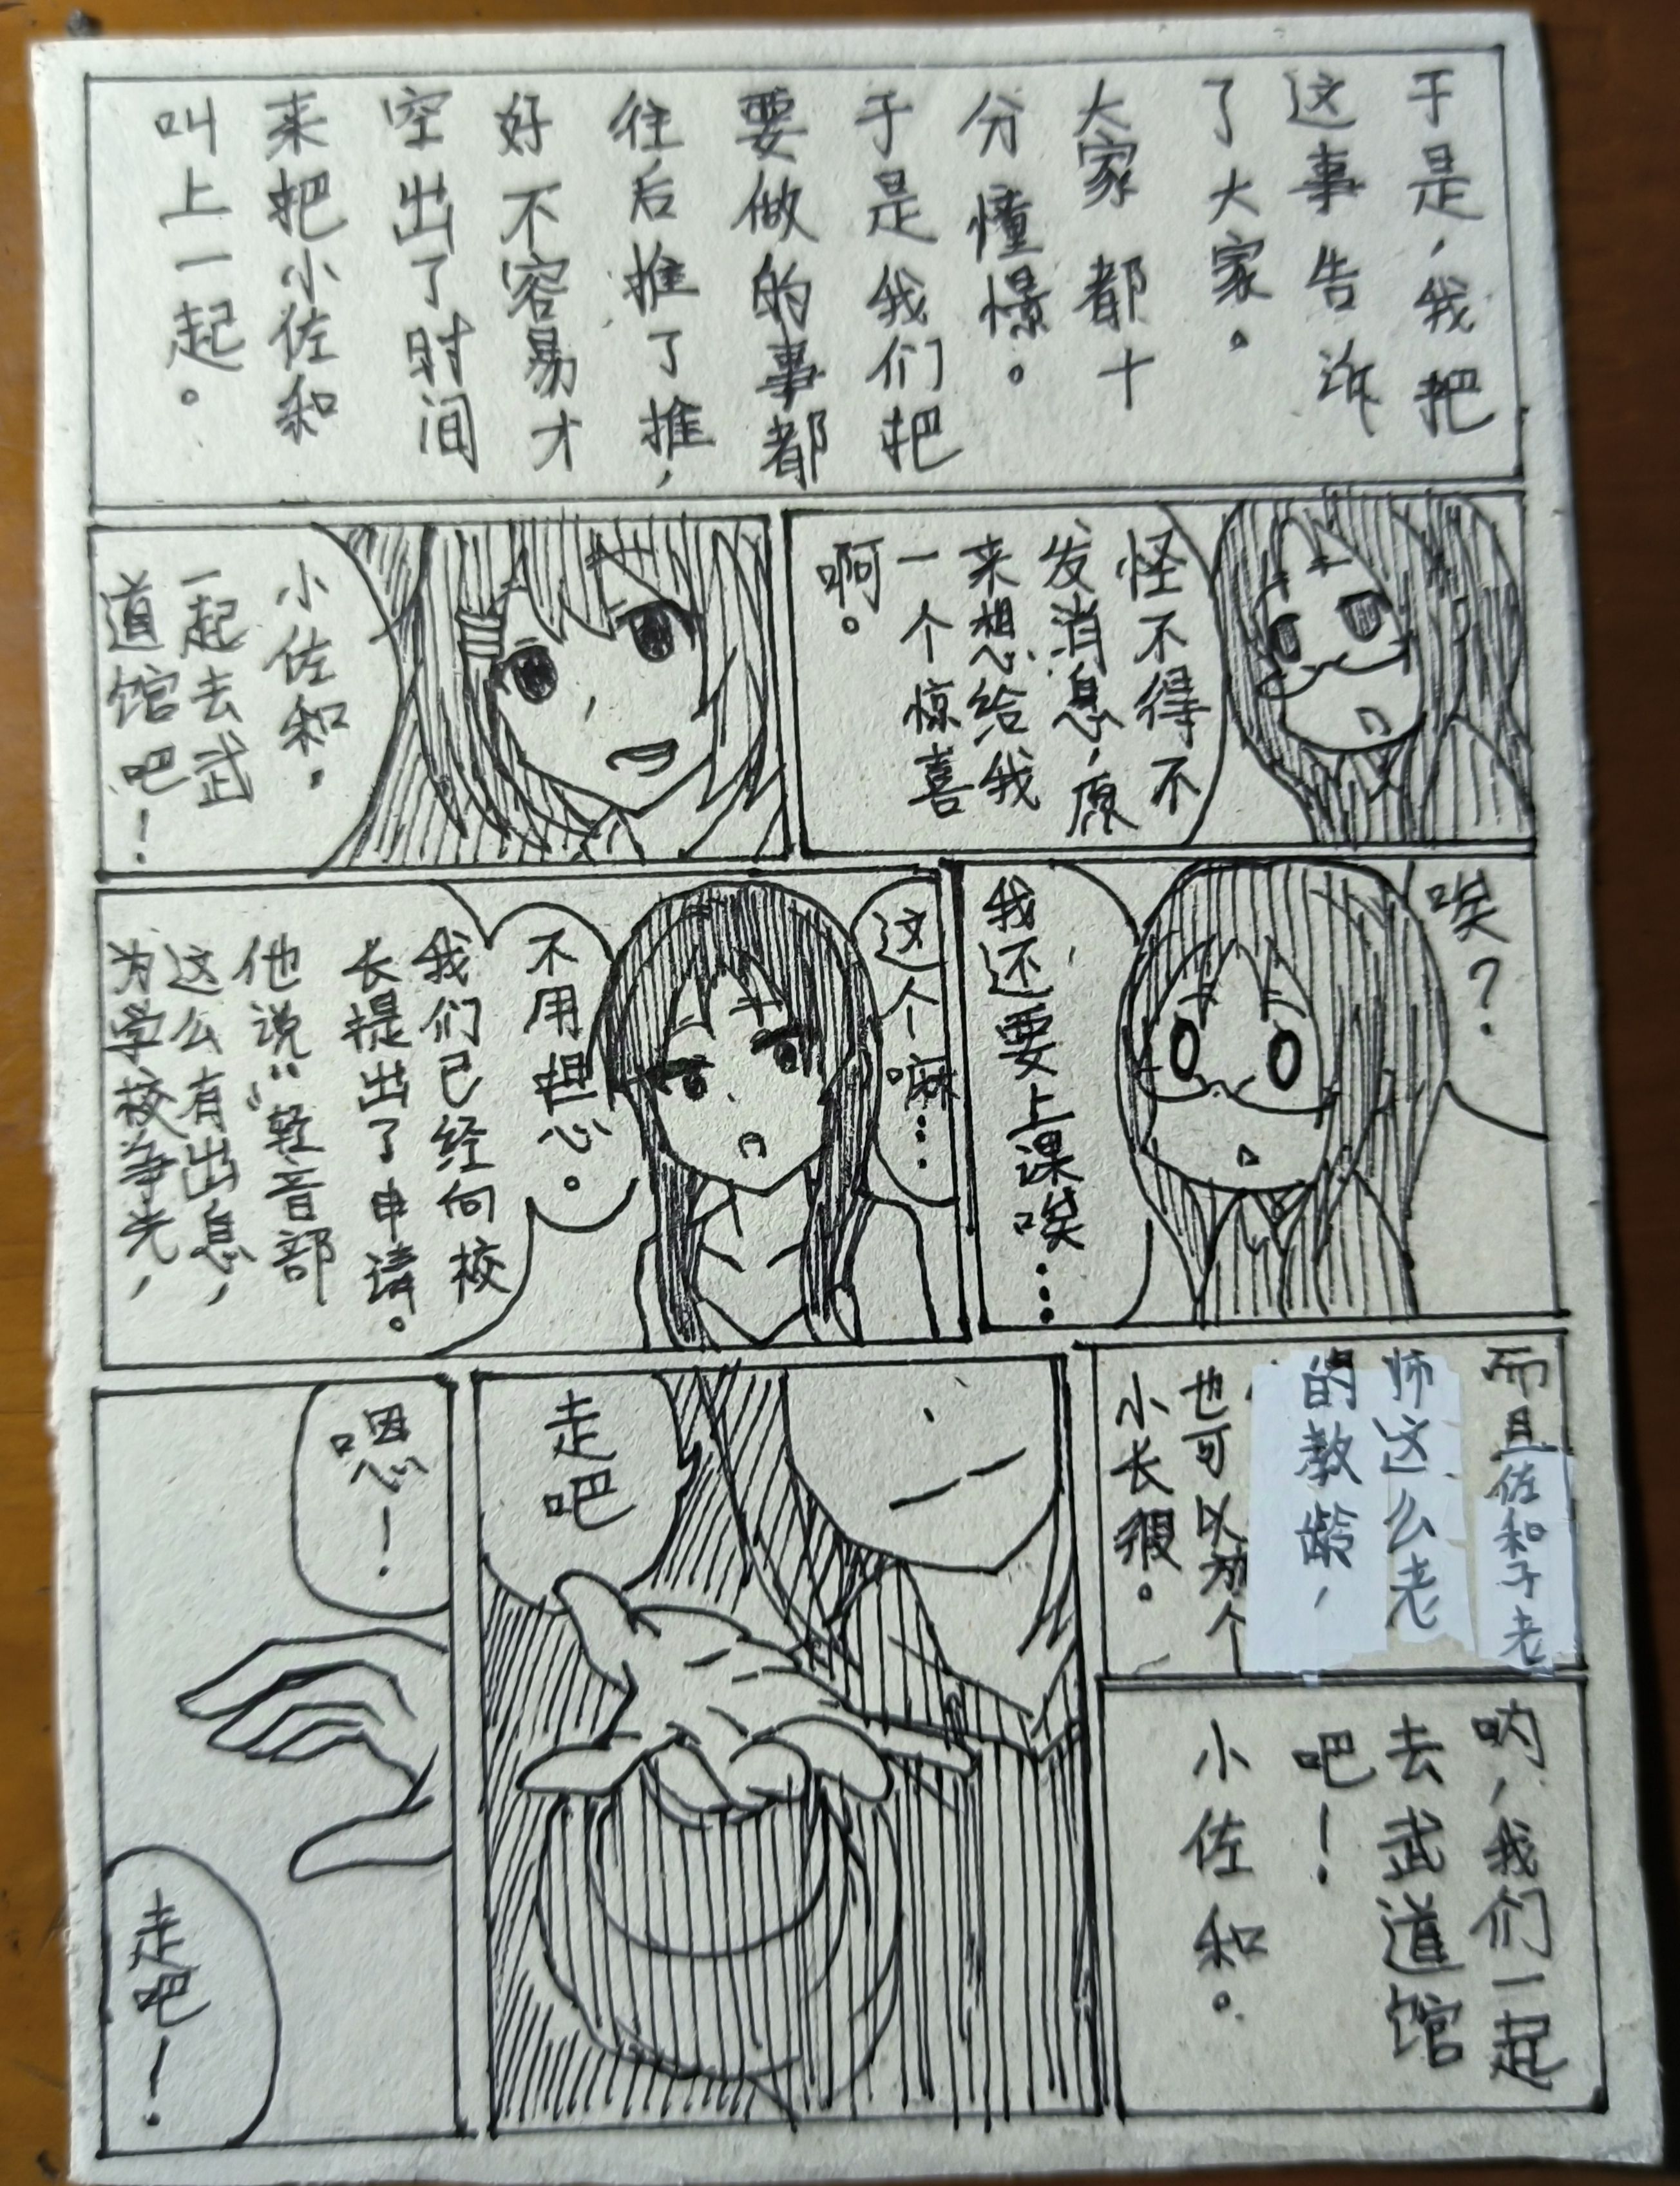 于是，我把
这事告诉
了大家。
大家都十
分憧憬。
于是我们把
要做的事都
往后推了推，
好不容易才
空出了时间
来把小佐和
叫上一起。
怪不得不
发消息，原
来想给我
一个惊喜
啊。
小佐和，
一起去武
道馆吧！
唉？
我还要上课唉……
这个嘛…
不用担心。
我们已经向校
长提出了申请。
他说“轻音部
这么有出息，
为学校争光，
而且佐和子老
师这么老
的教龄，
也可以放个
小长假。
呐，我们一起
去武道馆
吧！
小佐和。
走吧
嗯！
走吧！